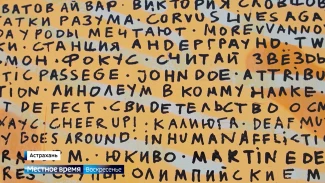 ВАТОВ АЙВАР · ВИКТОРИЯ С
ТКИ РАЗУМА · CORVUS LIVES AGA
УРОДЫ МЕЧТАЮТ · MOREVVANNO
К · СТАНЦИЯ АНДЕГРАУНД · TW
МОН · ФОКУС · СЧИТАЙ ЗВЁЗДЫ
TIC PASSEGE · JOHN DOE · ATTRIBU
TION · ЛИНОЛЕУМ В КОММУ НАЛКЕ
T DEFECT · СВИДЕТЕЛЬСТВО О СМ
ХАУС · CHEER UP! · КАЛИЮГА · DEAF MU
Y DOES AROUND · INHUMAN AFFLICTI
М · ЮКИВО · MARTIN EDE
ОЛИМПИЙСКИЕ
Астрахань
Местное время Воскресенье